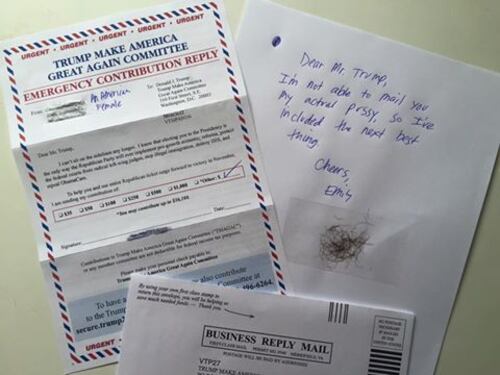 URGENT • URGENT • URGENT • URGENT • URGENT
TRUMP MAKE AMERICA
GREAT AGAIN COMMITTEE
EMERGENCY CONTRIBUTION REPLY
From:
An American
Female
To: Donald J. Trump
Trump Make America
Great Again Committee
310 First Street, S.E.
Washington, D.C. 20003
Dear Mr. Trump,
I can't sit on the sidelines any longer. I know that electing you to the Presidency is
the only way the Republican Party will ever implement pro-growth economic reforms, protect
the federal courts from radical left-wing judges, stop illegal immigration, defeat ISIS, and
repeal ObamaCare.
To help you and our entire Republican ticket surge forward to victory in November,
I am sending my contribution of:
$35 $50 $100 $250 $500 $1,000 *Other: $
*You may contribute up to
Signature:
Date:
Contributions to Trump Make America Great Again Committee ("TMAGAC")
are not deductible for federal income tax purposes.
Please make your personal check payable to:
Trump Make America Great Again Committee
To have a
also contribute
to the Trump
Committee at
secure.trump
-996-6264.
URGENT
Dear Mr. Trump,
I'm not able to mail you
my actual pussy, so I've
included the next best
thing.
Cheers,
Emily
By using your own first class stamp to
return this envelope, you will be helping us
save much needed funds. — Thank you.
NO POSTAGE
NECESSARY
IF MAILED
IN THE
UNITED STATES
BUSINESS REPLY MAIL
FIRST-CLASS MAIL PERMIT NO.
POSTAGE WILL BE PAID BY ADDRESSEE
VTP27
TRUMP MAKE AMERICA